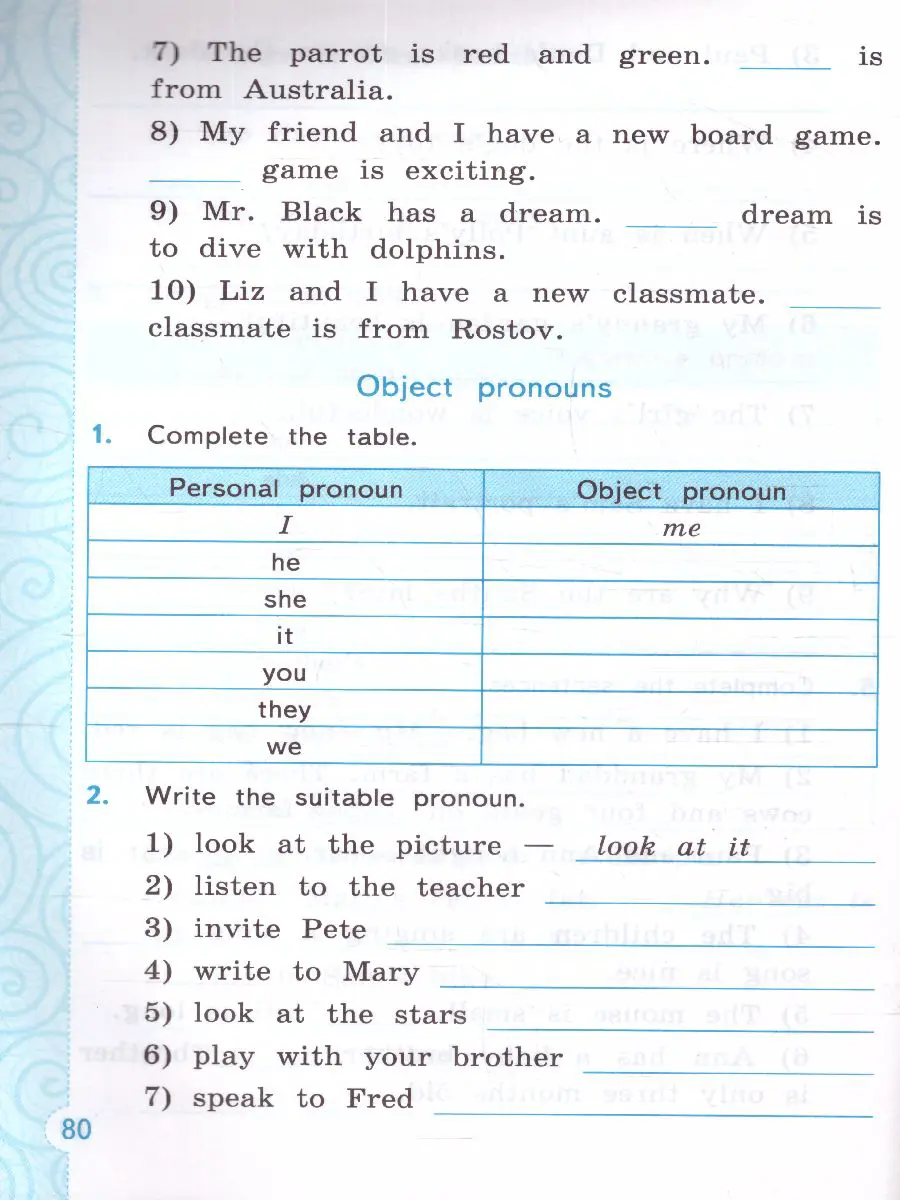 7) The parrot is red and green. ______ is
from Australia.
8) My friend and I have a new board game.
______ game is exciting.
9) Mr. Black has a dream. ______ dream is
to dive with dolphins.
10) Liz and I have a new classmate. ______
classmate is from Rostov.
Object pronouns
1. Complete the table.
Personal pronoun Object pronoun
I me
he
she
it
you
they
we
2. Write the suitable pronoun.
1) look at the picture — look at it
2) listen to the teacher ______
3) invite Pete ______
4) write to Mary ______
5) look at the stars ______
6) play with your brother ______
7) speak to Fred ______
80